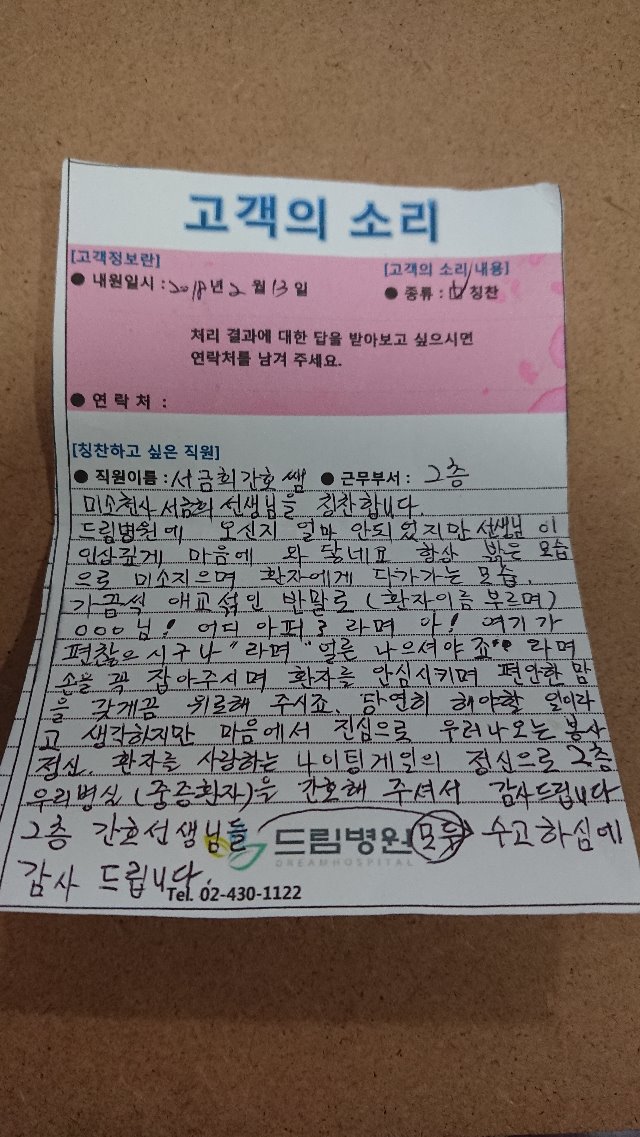 고객의 소리
[고객정보란]
● 내원일시 : 2018년 2월 13일
[고객의 소리/내용]
● 종류 : 칭찬
처리 결과에 대한 답을 받아보고 싶으시면
연락처를 남겨 주세요.
● 연 락 처 :
[칭찬하고 싶은 직원]
● 직원이름 : 서금희간호쌤 ● 근무부서 : 2층
미소천사 서금희 선생님을 칭찬합니다.
드림병원에 오신지 얼마 안되었지만 선생님 이
인상깊게 마음에 와 닿네요 항상 밝은 모습
으로 미소지으며 환자에게 다가가는 모습.
가끔씩 애교섞인 반말로 (환자이름 부르며)
ooo님! 어디 아퍼? 라며 아! 여기가
편찮으시구나" 라며 "얼른 나으셔야 죠" 라며
손을 꼭 잡아주시며 환자를 안심시키며 편안한 맘
을 갖게끔 위로해 주시죠. 당연히 해야할 일이라
고 생각하지만 마음에서 진심으로 우러나오는 봉사
정신. 환자를 사랑하는 나이팅게일의 정신으로 2층
우리병실 (중증환자)을 간호해 주셔서 감사드립니다
2층 간호선생님들 모두 수고하심에
드림병원
DREAMHOSPITAL
감사 드립니다.
Tel. 02-430-1122